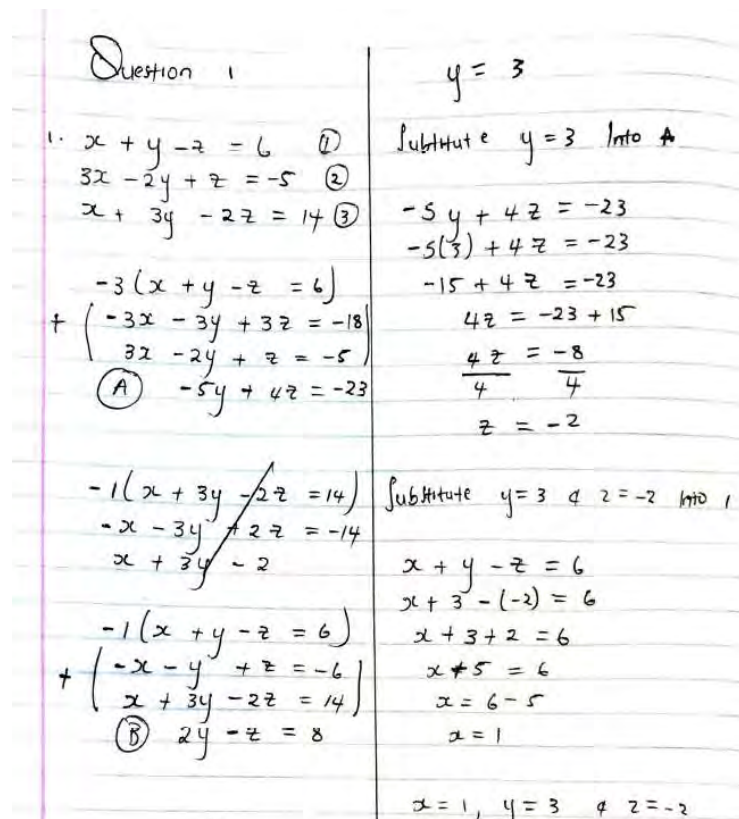 Question 1
1. x + y - z = 6 ①
3x - 2y + z = -5 ②
x + 3y - 2z = 14 ③
-3(x + y - z = 6)
+ ( -3x - 3y + 3z = -18 )
3x - 2y + z = -5
Ⓐ -5y + 4z = -23
-1(x + 3y - 2z = 14)
-x - 3y + 2z = -14
x + 3y - 2
-1(x + y - z = 6)
+ ( -x - y + z = -6 )
x + 3y - 2z = 14
Ⓑ 2y - z = 8
y = 3
Substitute y = 3 Into A
-5y + 4z = -23
-5(3) + 4z = -23
-15 + 4z = -23
4z = -23 + 15
4z = -8
4 4
z = -2
Substitute y = 3 & z = -2 Into 1
x + y - z = 6
x + 3 - (-2) = 6
x + 3 + 2 = 6
x + 5 = 6
x = 6 - 5
x = 1
x = 1, y = 3 & z = -2